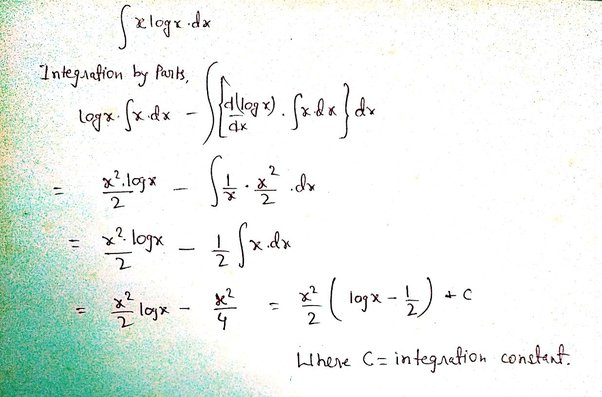 ∫ x log x · dx
Integration by Parts,
log x · ∫ x · dx − ∫ { d(log x)/dx · ∫ x · dx } dx
= x² · log x / 2 − ∫ 1/x · x²/2 · dx
= x² · log x / 2 − 1/2 ∫ x · dx
= x²/2 log x − x²/4 = x²/2 ( log x − 1/2 ) + C
Where C = integration constant.